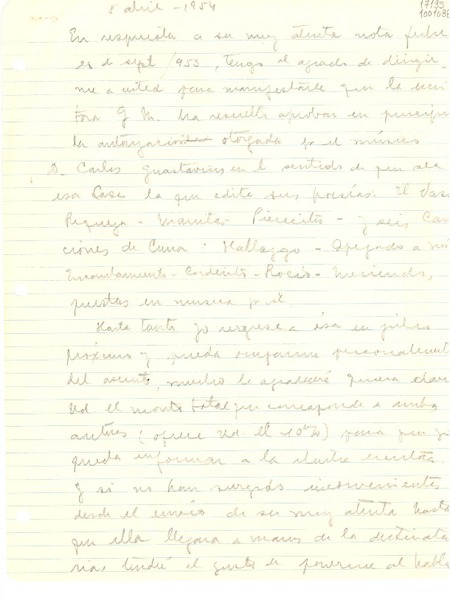 5 abril - 1954
En respuesta a su muy atenta nota fecha
21 de sept/953, tengo el agrado de dirigir-
me a usted para manifestarle que la escri-
tora G. M. ha resuelto aprobar en principio
la autorización otorgada por el músico
D. Carlos Guastavino en el sentido de que sea
esa Casa la que edite sus poesías: El Vaso
Pequeña - Manitas - Piececitos - y seis Can
ciones de Cuna: Hallazgo - Apegado a mí
Encantamiento - Corderito - Rocío - Meciendo,
puestas en música por él
Hasta tanto yo regrese a ésa en julio
próximo y pueda personalmente
del asunto, mucho le agradeceré quiera
Ud. el monto total que corresponde a ambos
autores (ofrece Ud. el 10%) para que yo
pueda informar a la ilustre escritora
y si no han surgido inconvenientes
desde el envío de su muy atenta hasta
que ella llegara a manos de la destinata
ria, tendré el gusto de ponerme al habla